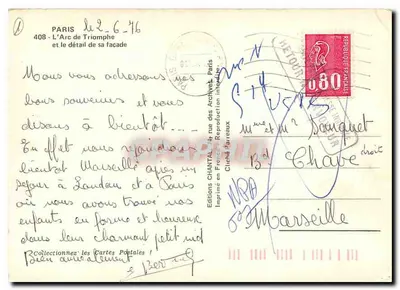 PARIS
le 2-6-76
408 - L'Arc de Triomphe
et le détail de sa façade
Nous vous adressons nos
bons souvenirs et vous
disons à bientôt...
En effet nous rejoindrons
bientôt Marseille après un
séjour à Londan et à Paris
où nous avons trouvé nos
enfants en forme et heureux
dans leur charmant petit nid
Bien amicalement
Collectionnez les Cartes Postales !
Editions CHANTAL, rue des Archives, Paris
Imprimé en France - Reproduction interdite
Clichés
REPUBLIQUE FRANCAISE
0,80
RETOUR
Mme et Mr Bouquet
Bd Chave
Marseille
NPA